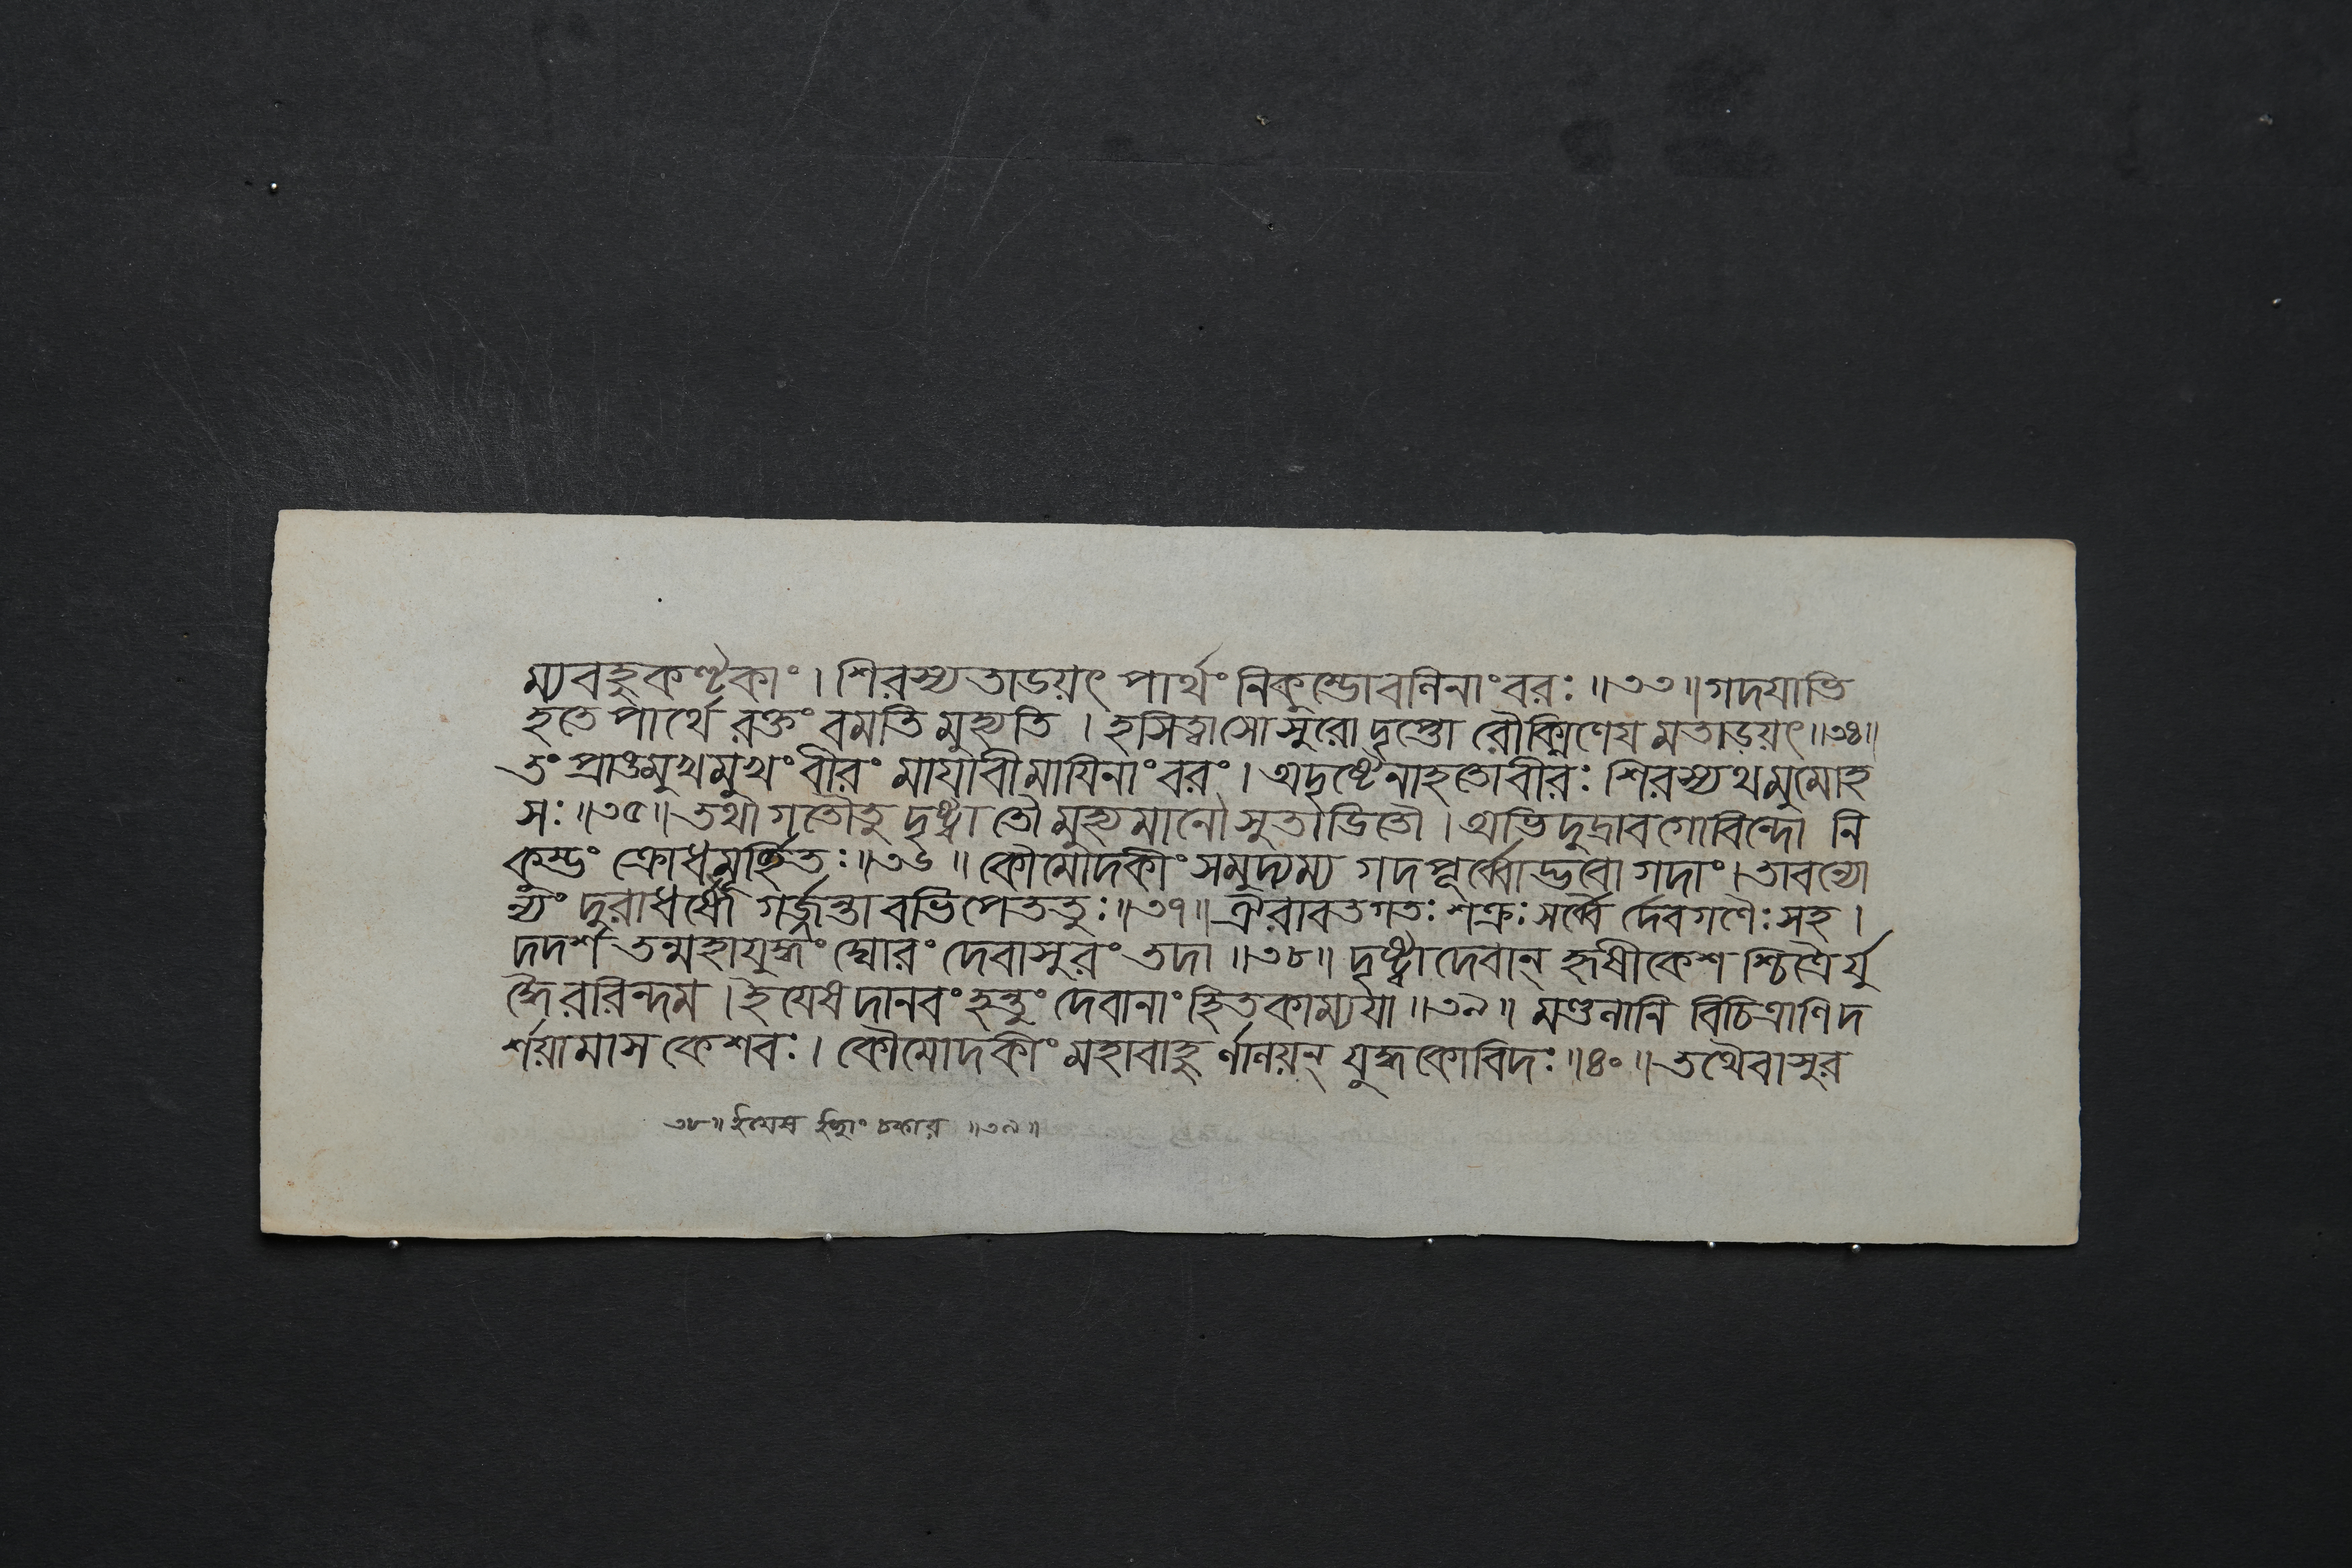 ম্যবহুকণ্টকাং । শিরস্যতাডয়ৎ পার্থং নিকুম্ভোবলিনাংবরঃ ॥৩৩॥ গদযাভি
হতে পার্থে রক্তং বমতি মুহ্যতি । হসিত্বাসোসুরোদৃপ্তো রৌক্মিণেয মতাডয়ৎ ॥৩৪॥
তং প্রাঙমুখমুখং বীরং মাযাবীমাযিনাংবরং । অদৃষ্টেনাহতোবীরঃ শিরস্যথমুমোহ
সঃ ॥৩৫॥ তথা গতৌতু দৃষ্ট্বা তৌ মুহ্যমানৌ সুতাডিতৌ । অভিদুদ্রাবগোবিন্দো নি
কুম্ভং ক্রোধমূর্চ্ছিতঃ ॥৩৬॥ কৌমোদকীং সমুদ্যম্য গদপূর্ব্বোদ্ভবো গদাং । তাবন্যো
ন্যং দুরাধর্ষৌ গর্জ্জন্তাবভিপেততুঃ ॥৩৭॥ ঐরাবতগতঃ শক্রঃ সর্ব্বৈ র্দেবগণৈঃ সহ ।
দদর্শ তন্মহাযুদ্ধং ঘোরং দেবাসুরং তদা ॥৩৮॥ দৃষ্ট্বা দেবান্ হৃষীকেশ শ্চিত্রৈর্যু
দ্ধৈররিন্দম । ইযেষ দানবং হন্তুং দেবানাং হিতকাম্যযা ॥৩৯॥ মণ্ডলানি বিচিত্রাণি দ
র্শয়ামাস কেশবঃ । কৌমোদকীং মহাবাহু র্লালয়ন্ যুদ্ধকোবিদঃ ॥৪০॥ তথৈবাসুর
৩৮॥ ইযেষ চকার ॥৩৯॥